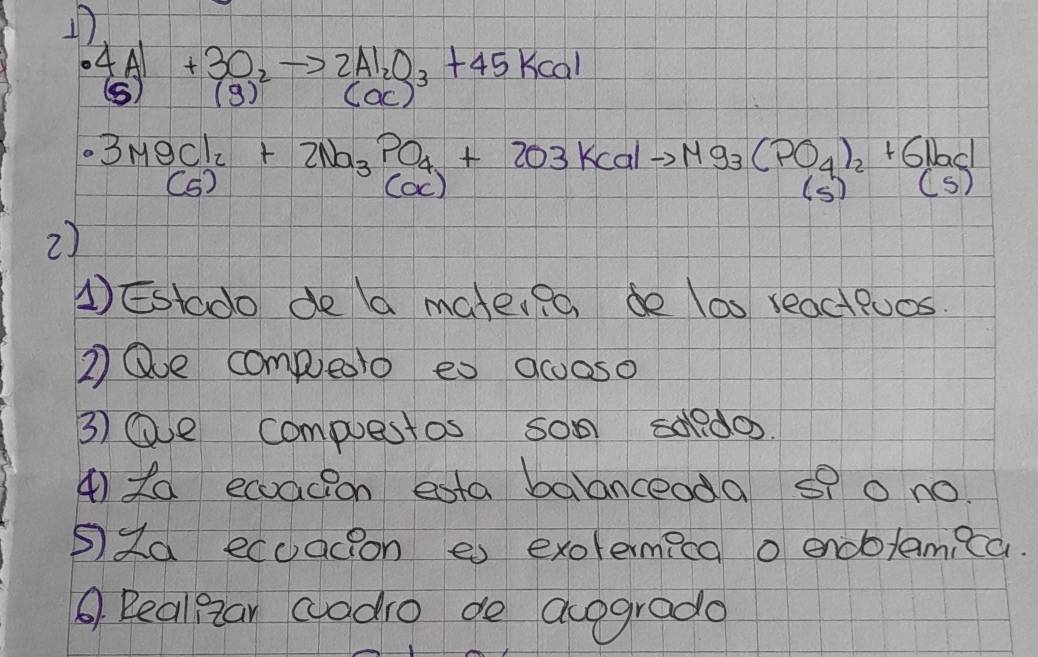 1)
•4Al + 3O₂ → 2Al₂O₃ + 45 Kcal
(s) (g) (ac)
•3MgCl₂ + 2Na₃PO₄ + 203 Kcal → Mg₃(PO₄)₂ + 6Nacl
(s) (ac) (s) (s)
2)
1) Estado de la materia de los reactivos.
2) Que compuesto es acuoso
3) Que compuestos son solidos.
4) La ecuacion esta balanceada si o no.
5) La eccuacion es exotermica o endotermica.
6). Realizar cuadro de avogrado